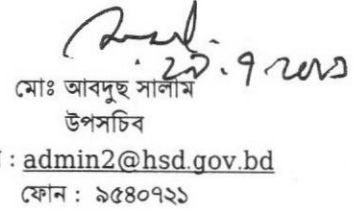 ২৯.৭.২০২১
মোঃ আবদুছ সালাম
উপসচিব
: admin2@hsd.gov.bd
ফোন : ৯৫৪০৭২১